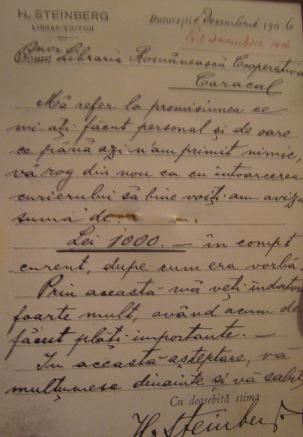 H. STEINBERG
LIBRAR-EDITOR
București, Decembrie 1906
Libraria Românească Cooperativa
Caracal
Mă refer la promisiunea ce
mi ați făcut personal și de oare
ce până azi n'am primit nimic,
vă rog din nou ca cu întoarcerea
curierului să bine voiți a-m aviza
suma de:
Lei 1000.— în compt
curent, dupe cum era vorba.
Prin aceasta mă veți îndatora
foarte mult, având acum de
făcut plăți importante.—
In această așteptare, vă
mulțumesc dinainte și vă salut
Cu deosebită stimă
H. Steinberg